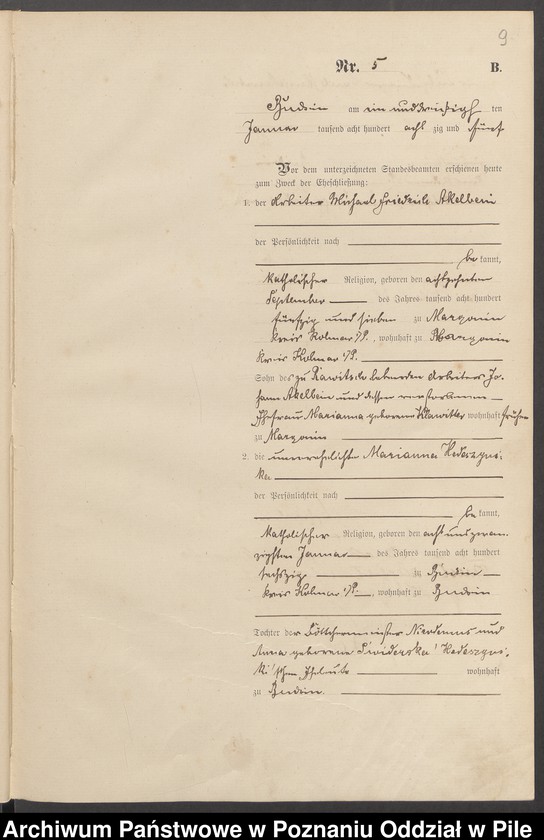 9
Nr. 5 B.
Budsin am ein und dreißigsten
Januar tausend acht hundert acht zig und fünf
Vor dem unterzeichneten Standesbeamten erschienen heute
zum Zweck der Eheschließung:
1. der Arbeiter Michael Friedrich Akelbein
der Persönlichkeit nach
be kannt,
katholischer Religion, geboren den achtzehnten
September des Jahres tausend acht hundert
fünfzig und sieben zu Margonin
Kreis Kolmar i/P. , wohnhaft zu Margonin
Kreis Kolmar i/P.
Sohn des zu lebenden Arbeiters Jo-
hann Akelbein und dessen verstorbenen
Ehefrau Marianna geborene Klawitter wohnhaft früher
zu Margonin
2. die unverehelichte Marianna
ka
der Persönlichkeit nach
be kannt,
katholischer Religion, geboren den acht und zwan-
zigsten Januar des Jahres tausend acht hundert
sechszig zu Budsin
Kreis Kolmar i/P. , wohnhaft zu Budsin
Tochter der Böttchermeister Nicodemus und
Anna geborene
Eheleute wohnhaft
zu Budsin.
Archiwum Państwowe w Poznaniu Oddział w Pile